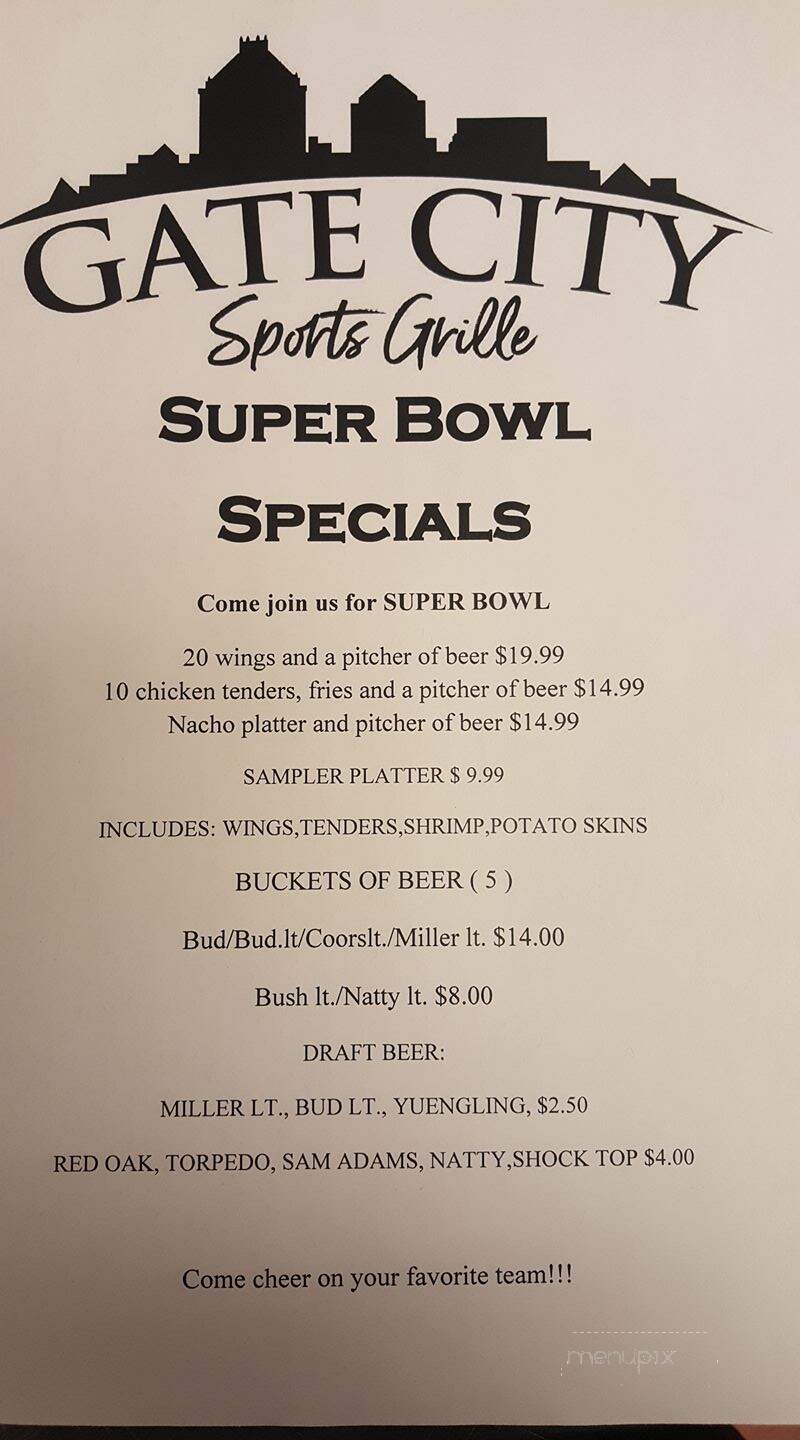 GATE CITY
Sports Grille
SUPER BOWL
SPECIALS
Come join us for SUPER BOWL
20 wings and a pitcher of beer $19.99
10 chicken tenders, fries and a pitcher of beer $14.99
Nacho platter and pitcher of beer $14.99
SAMPLER PLATTER $ 9.99
INCLUDES: WINGS,TENDERS,SHRIMP,POTATO SKINS
BUCKETS OF BEER ( 5 )
Bud/Bud.lt/Coorslt./Miller lt. $14.00
Bush lt./Natty lt. $8.00
DRAFT BEER:
MILLER LT., BUD LT., YUENGLING, $2.50
RED OAK, TORPEDO, SAM ADAMS, NATTY,SHOCK TOP $4.00
Come cheer on your favorite team!!!
menupix